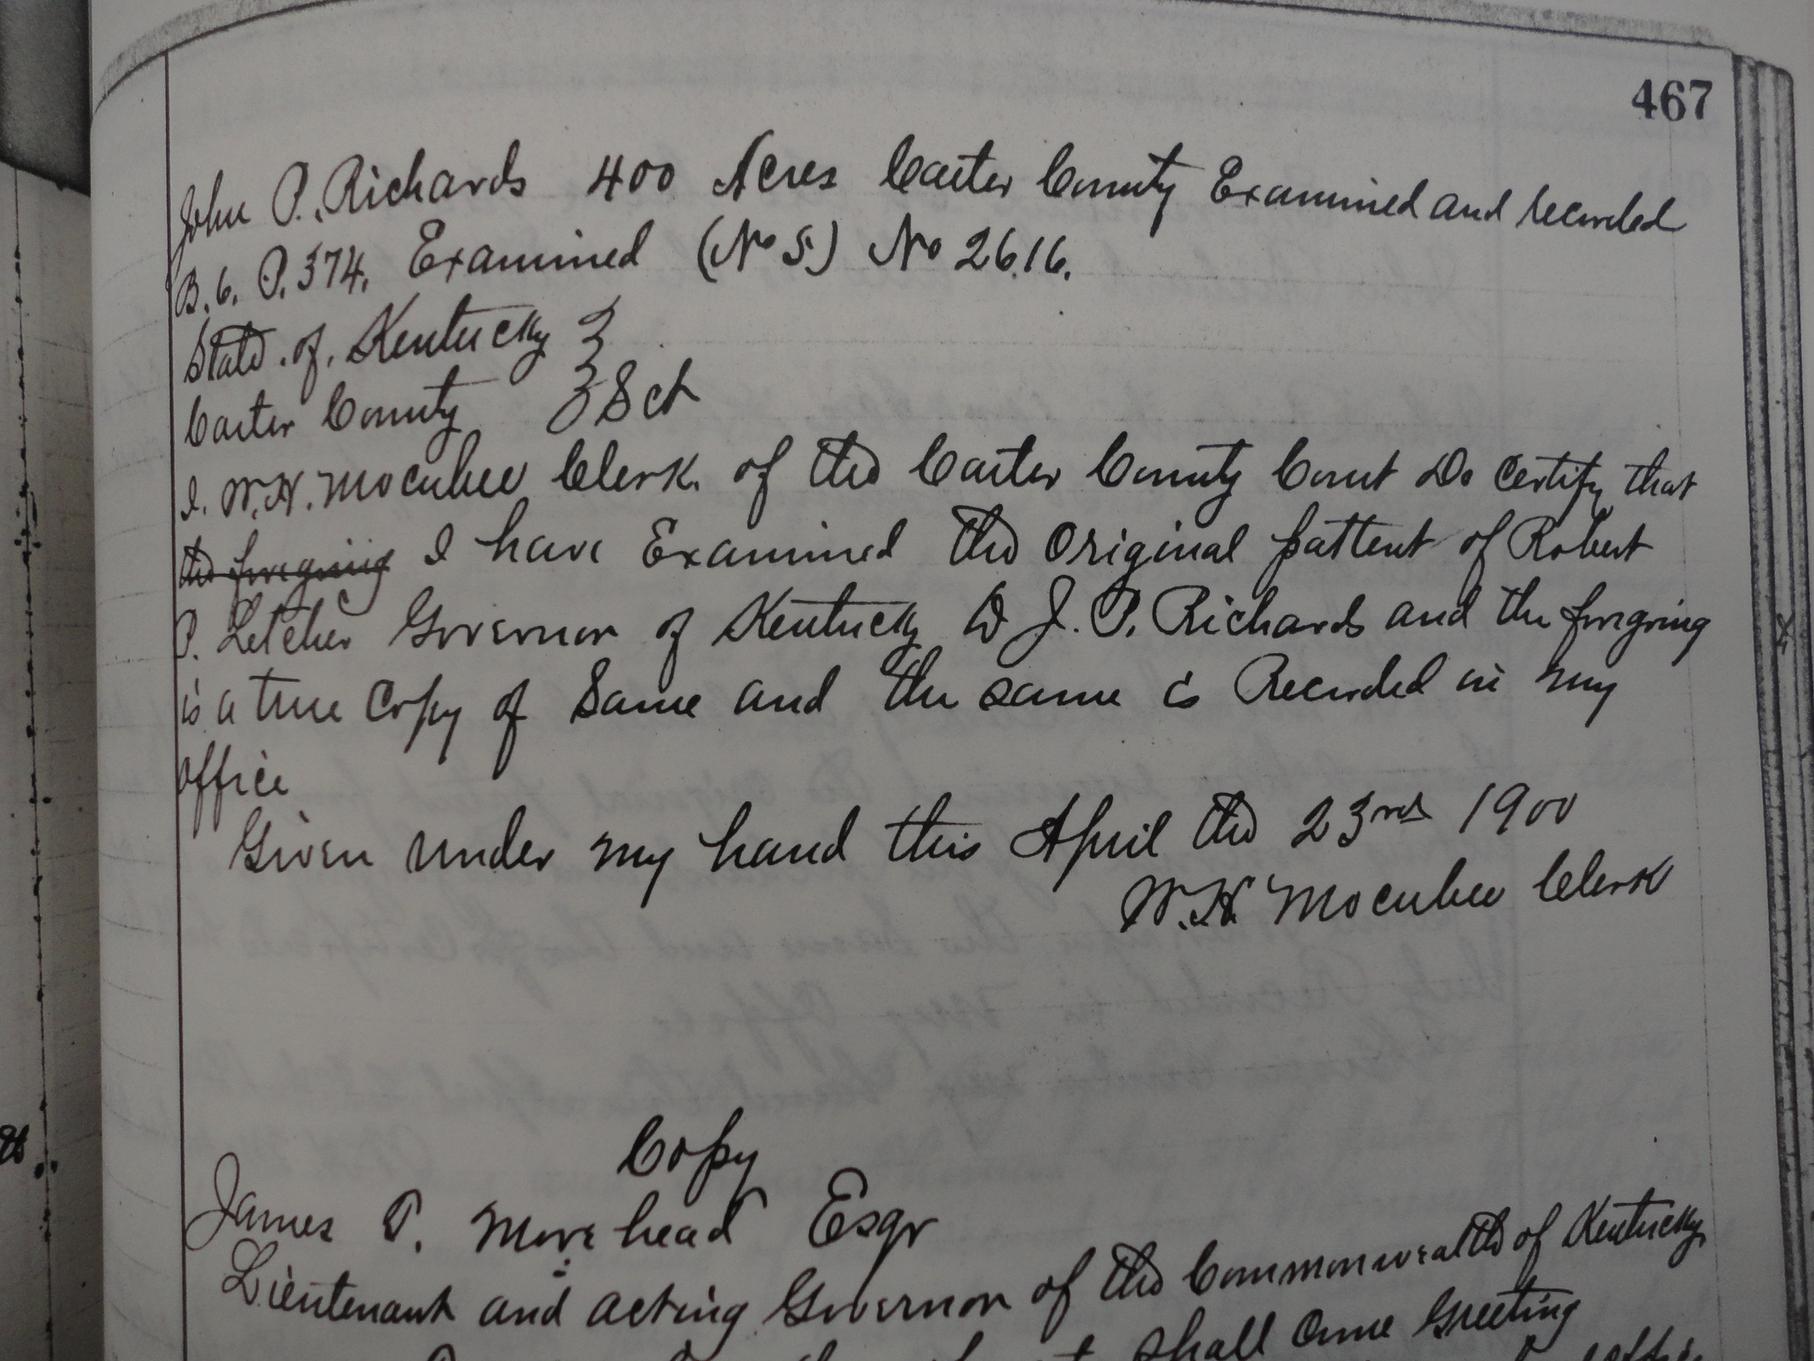 467
John P. Richards 400 Acres Carter County Examined and recorded
B. 6. P. 374. Examined (No 5.) No 2616.
State of Kentucky }
Carter County } Sct
I. W.H. Mocubee Clerk. of the Carter County Court Do certify that
the foregoing I have Examined the Original pattent of Robert
P. Letcher Governor of Kentucky to J. P. Richards and the foregoing
is a true Copy of Same and the same is Recorded in my
office
Given under my hand this April the 23rd 1900
W.H. Mocubee Clerk
Copy
James T. Morehead Esqr
Lieutenant and acting Governor of the Commonwealth of Kentucky
shall Come Greeting